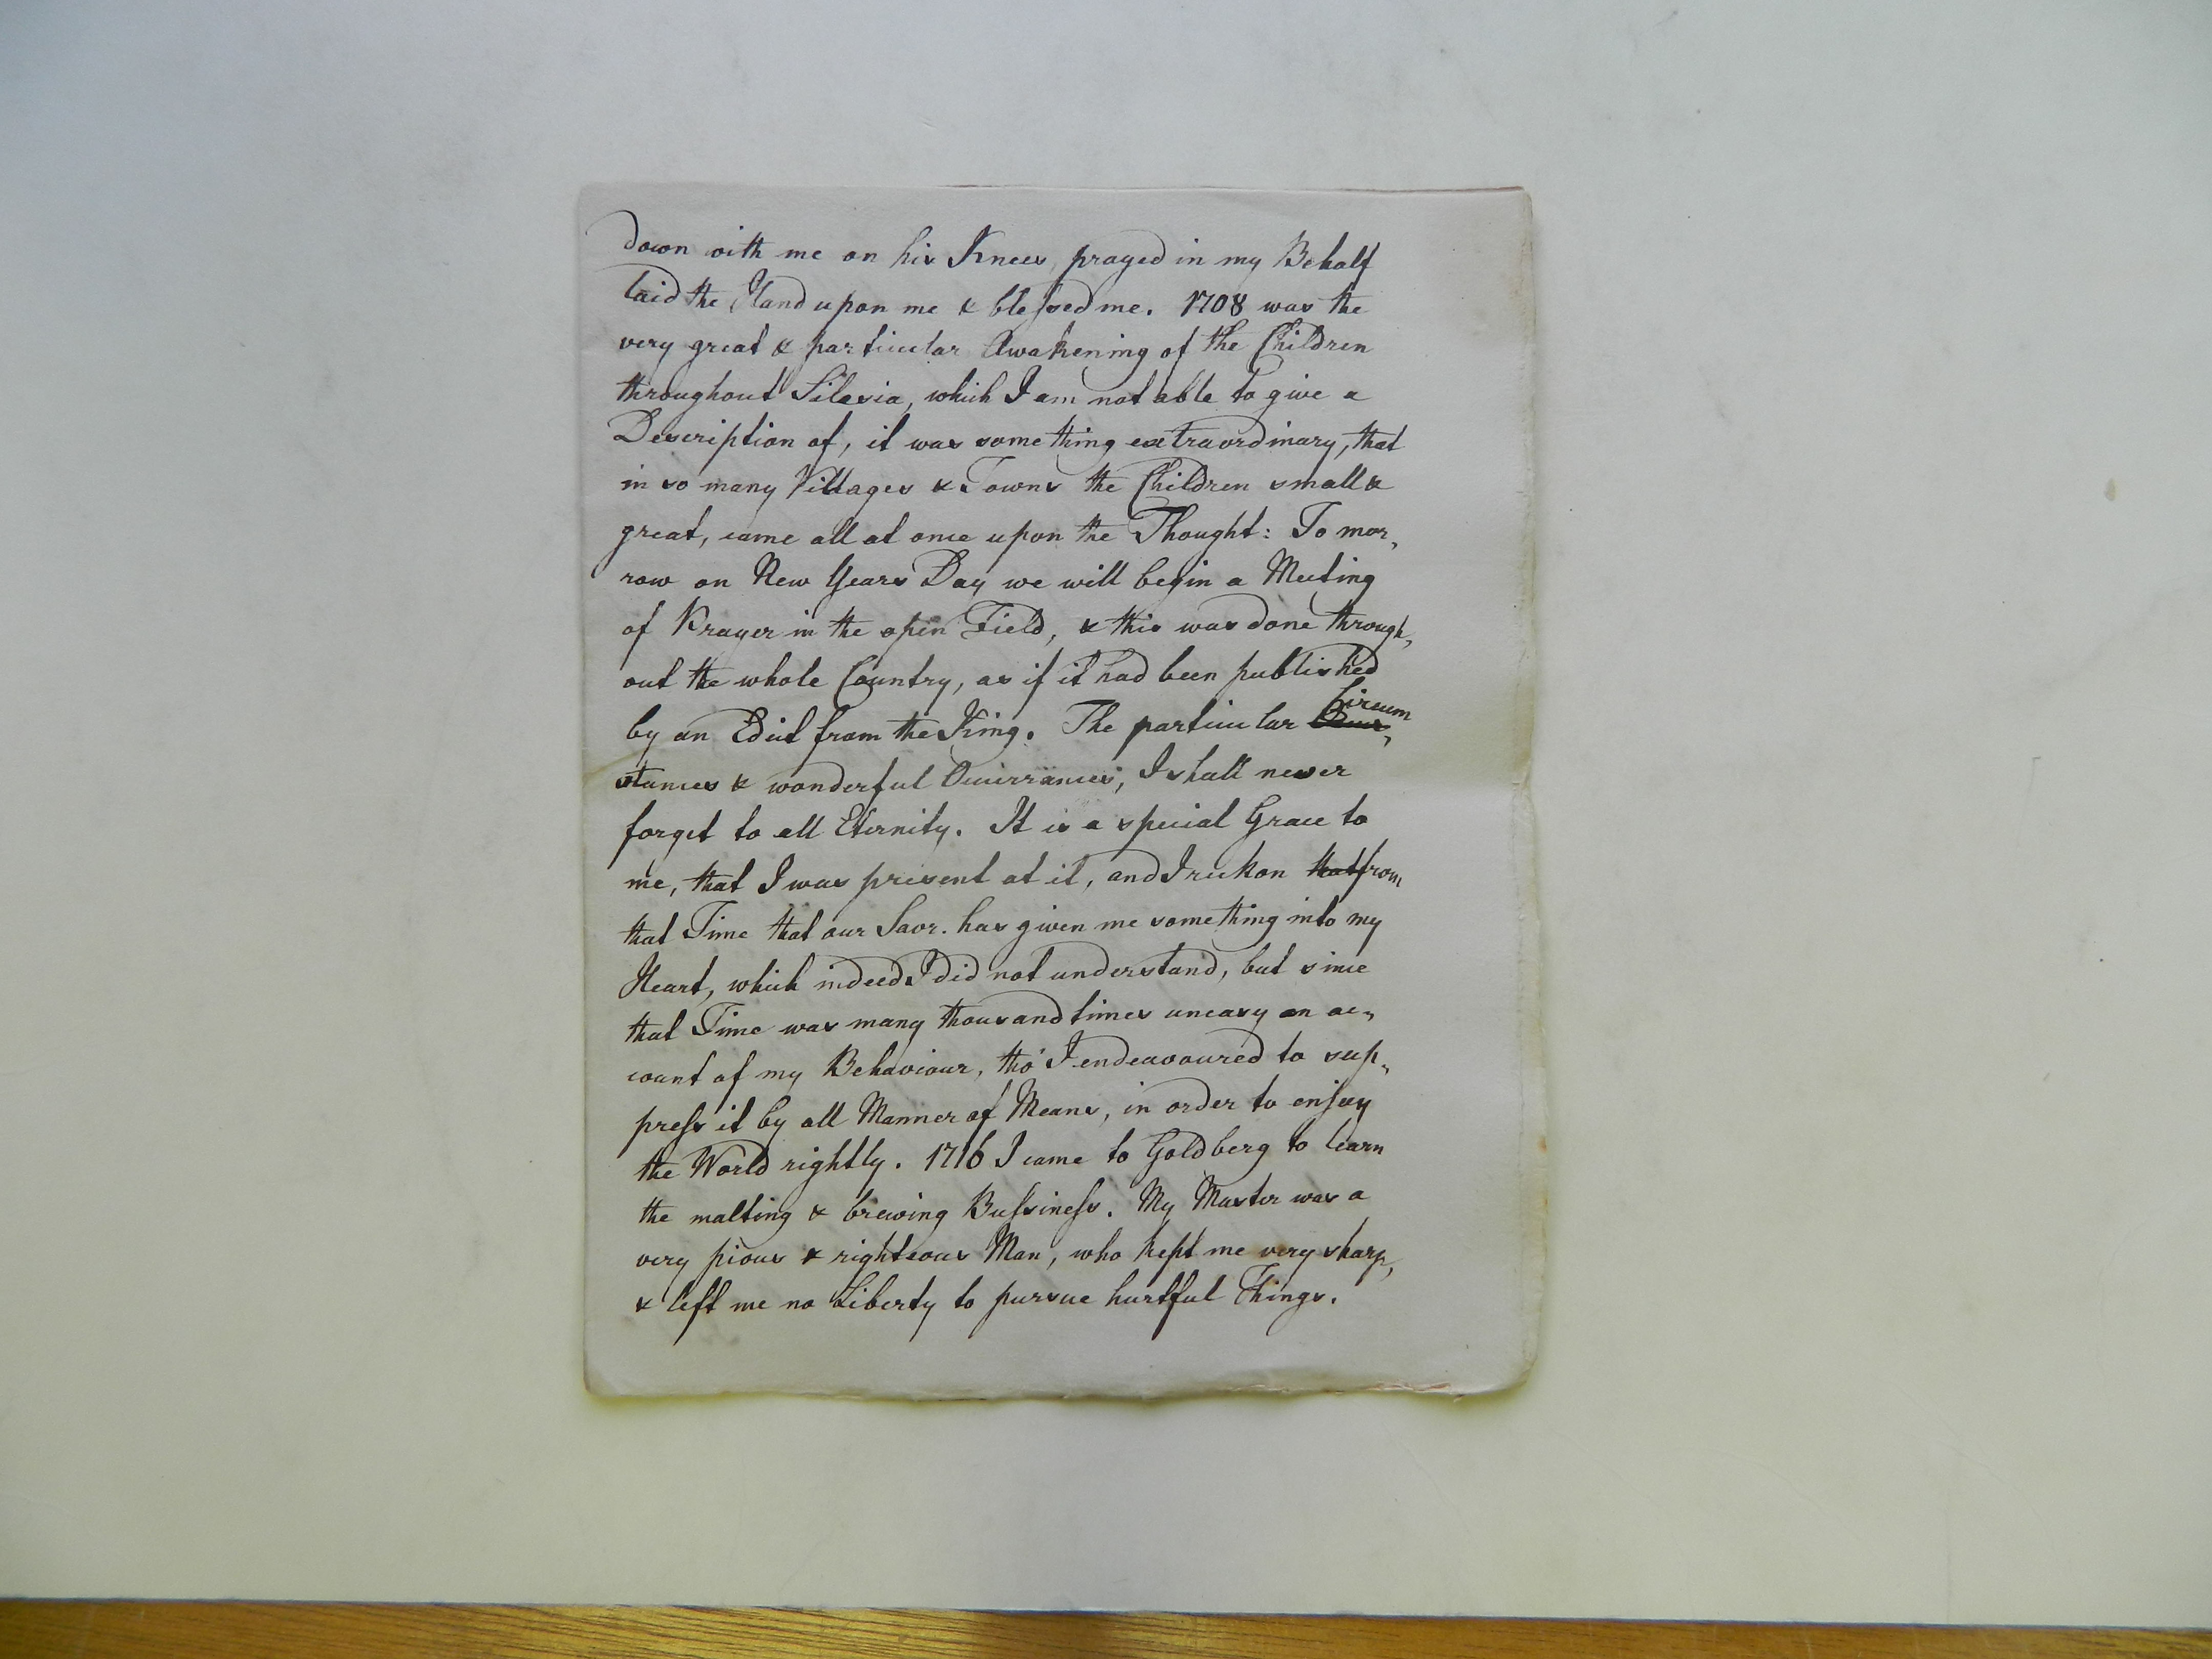 down with me on his Knees, prayed in my Behalf
laid the Hand upon me & blessed me. 1708 was the
very great & particular Awakening of the Children
throughout Silesia, which I am not able to give a
Description of, it was something extraordinary, that
in so many Villages & Towns the Children small &
great, came all at once upon the Thought: To mor„
row on New Years Day we will begin a Meeting
of Prayer in the open Field, & this was done through„
out the whole Country, as if it had been published
by an Edict from the King. The particular Circum
stances & wonderful Occurrances, I shall never
forget to all Eternity. It is a special Grace to
me, that I was present at it, and I reckon that from
that Time that our Savr. has given me something into my
Heart, which indeed I did not understand, but since
that Time was many thousand times uneasy on ac„
count of my Behaviour, tho' I endeavoured to sup„
press it by all Manner of Means, in order to enjoy
the World rightly. 1716 I came to Goldberg to learn
the malting & brewing Bussiness. My Master was a
very pious & righteous Man, who kept me very sharp,
& left me no Liberty to pursue hurtful Things.